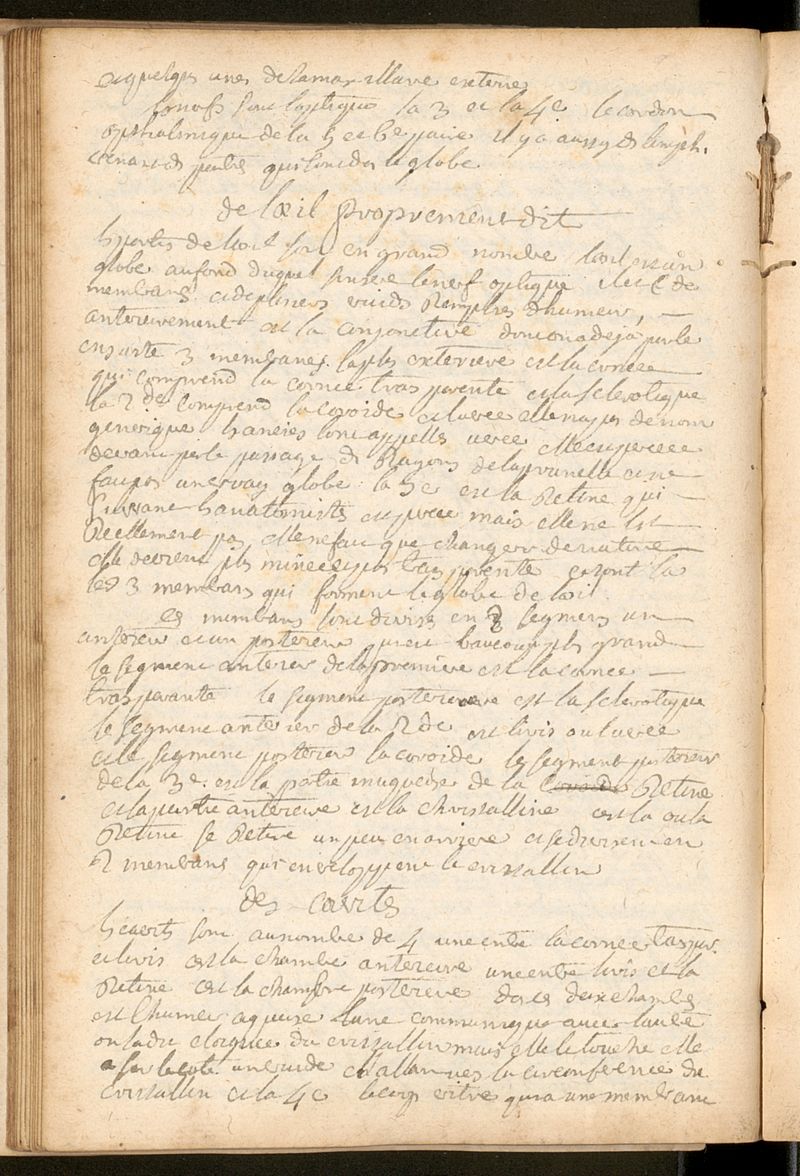 quelques unes de la maxillaire externe
sont l'optique la 3 et la 4e le cordon
de la 5 et la 6e paire il y a aussy
petites qui globe
de l'oeil proprement dit
de l'oeil sont en grand nombre l'oeil est un
globe au fond duquel s'insere le nerf optique de
membrans vuides Remplies d'humeur,
anterieurement est la conjonctive dont on a deja parlé
ensuitte 3 membranes la plus exterieure est la cornee
qui comprend la cornee trasparente et la sclerotique
la 2de comprend la coroide et l'uvee elle n'a pas de nom
generique les anciens l'ont appellé uvee elle est percee
devant par le passage des Rayons de la prunelle et ne
fait pas un vray globe la 3e est la Retine qui
suivant les anatomistes est percee mais elle ne l'est
Reellement pas elle ne fait que changer de nature
elle devient plus mince et plus trasparente ce sont la
les 3 membrans qui forment le globe de l'oeil
ces membrans sont divisés en 2 segmens un
anterieur et un posterieur qui est beaucoup plus grand
le segment anterieur de la premiere est la cornee
trasparante le segment posterieure est la sclerotique
le segment anterieur de la 2de est l'iris ou l'uvee
et le segment posterieur la coroide le segment posterieur
de la 3e est la partie muqueuse de la Coroide Retine
et la partie anterieure est la christalline c'est la ou la
Retine se Retire un peu en arriere et se divise en
2 membrans qui enveloppent le cristallin
des cavités
les cavités sont au nombre de 4 une entre la cornee traspar.
et l'iris c'est la chambre anterieure une entre l'iris et la
Retine c'est la chambre posterieure dans ces deux chambres
est l'humeur aqueuse l'une communique avec l'autre
on la du cristallin mais elle le touche elle
a sur le coté un vuide en allant vers la circonference du
cristallin et la 4e le corps vitré qui a une membrane